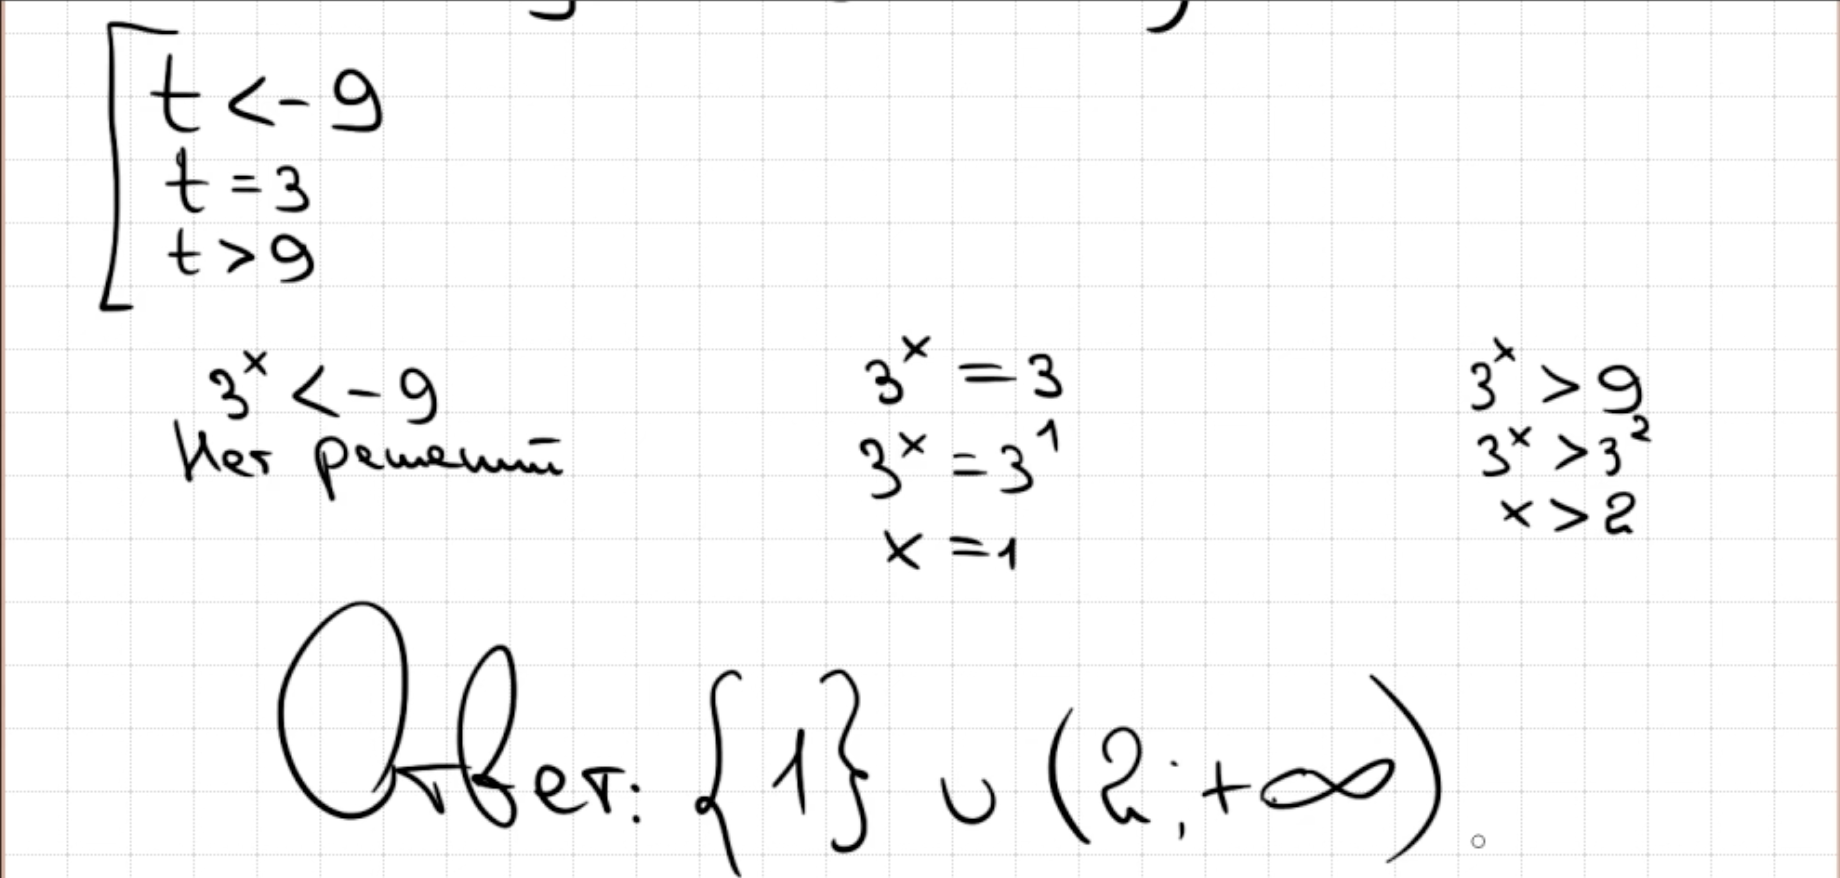 t < -9
t = 3
t > 9
3^x < -9
Нет решений
3^x = 3
3^x = 3^1
x = 1
3^x > 9
3^x > 3^2
x > 2
Ответ: {1} ∪ (2; +∞)